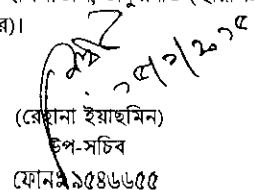 র)।
১৫/১/২০১৫
(রেহানা ইয়াছমিন)
উপ-সচিব
ফোনঃ ৯৫৪৬৬৫৫